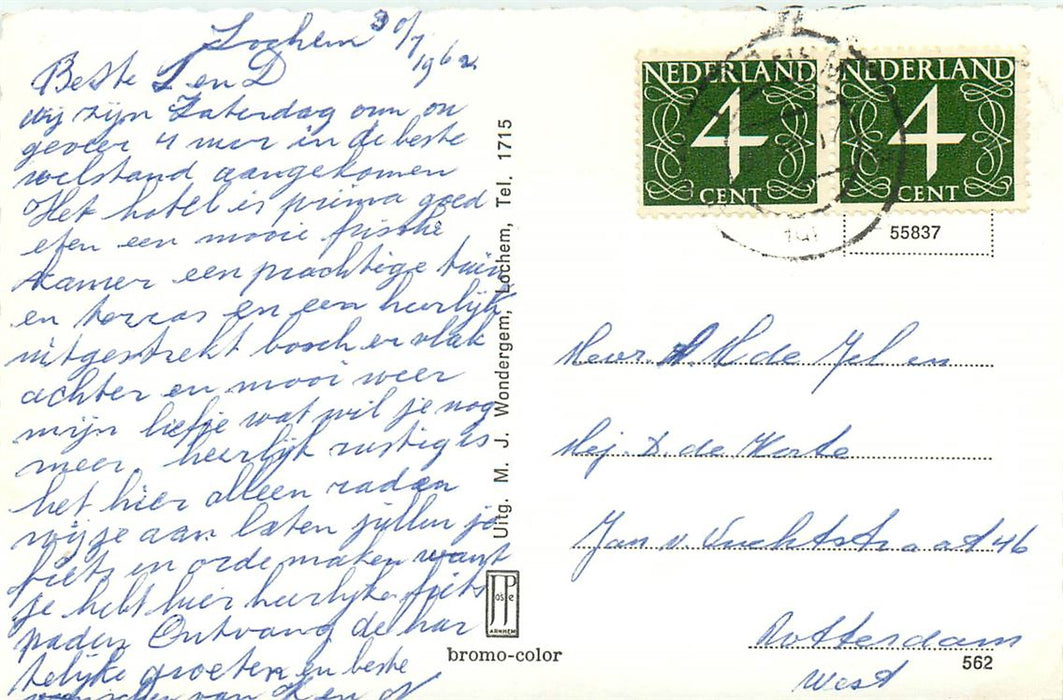 Lochem 30/7 1962
Beste L en D
wij zijn Zaterdag om on
geveer 4 uur in de beste
welstand aangekomen
Het hotel is prima goed
eten een mooie frische
kamer een prachtige tuin
en terras en een heerlijk
uitgestrekt bosch er vlak
achter en mooi weer
mijn liefje wat wil je nog
meer, heerlijk rustig is
het hier alleen raden
wij je aan laten jullen je
fiets in orde maken want
je hebt hier heerlijke fiets
paden Ontvang de har
telijke groeten en beste
van en
Uitg. M. J. Wondergem, Lochem, Tel. 1715
JosPe
ARNHEM
bromo-color
NEDERLAND
4
CENT
NEDERLAND
4
CENT
55837
Heer. H de
Mej. D. de Korte
Jan v. Vuchtstraat 46
Rotterdam
West
562